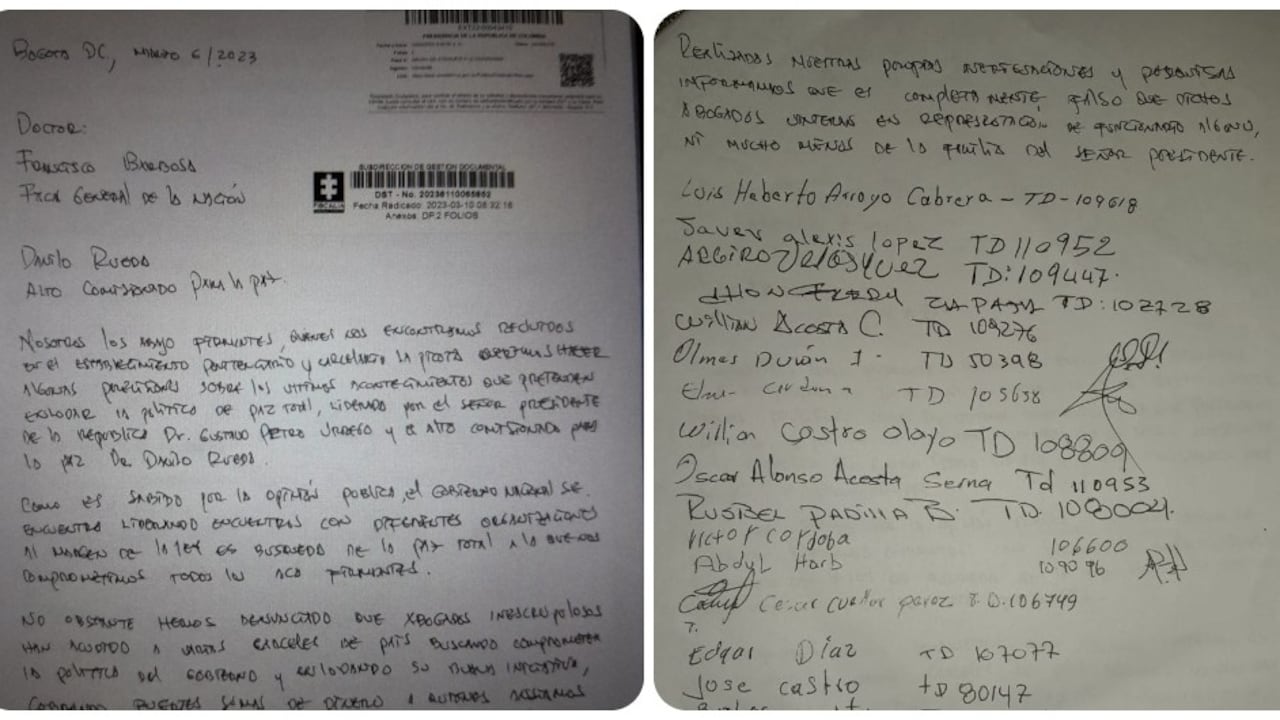 BOGOTA DC, MARZO 6/2023
PRESIDENCIA DE LA REPUBLICA DE COLOMBIA
DOCTOR:
FRANCISCO BARBOSA
FISCAL GENERAL DE LA NACIÓN
SUBDIRECCION DE GESTION DOCUMENTAL
FISCALIA
DST - No. 20236110065852
Fecha Radicado: 2023-03-10 08:32:16
Anexos: DP.2 FOLIOS
DANILO RUEDA
ALTO COMISIONADO PARA LA PAZ.
NOSOTROS LOS ABAJO FIRMANTES QUIENES NOS ENCONTRAMOS RECLUIDOS
EN EL ESTABLECIMIENTO PENITENCIARIO Y CARCELARIO LA PICOTA QUEREMOS HACER
ALGUNAS PRECISIONES SOBRE LOS ULTIMOS ACONTECIMIENTOS QUE PRETENDEN
ENLODAR LA POLÍTICA DE PAZ TOTAL, LIDERADO POR EL SEÑOR PRESIDENTE
DE LA REPUBLICA DR. GUSTAVO PETRO URREGO Y EL ALTO COMISIONADO PARA
LA PAZ DR DANILO RUEDA.
COMO ES SABIDO POR LA OPINIÓN PUBLICA, EL GOBIERNO NACIONAL SE
ENCUENTRA LIDERANDO ENCUENTROS CON DIFERENTES ORGANIZACIONES
AL MARGEN DE LA LEY ES BUSQUEDA DE LA PAZ TOTAL A LO QUE NOS
COMPROMETIMOS TODOS LOS ACA FIRMANTES.
NO OBSTANTE HEMOS DENUNCIADO QUE ABOGADOS INESCRUPULOSOS
HAN ACUDIDO A VARIAS CARCELES DE PAIS BUSCANDO COMPROMETER
LA POLITICA DEL GOBIERNO Y ENLODANDO SU BUENA INICIATIVA,
COBRANDO FUERTES SUMAS DE DINERO A
REALIZADAS NUESTRAS PROPIAS INVESTIGACIONES Y PESQUISAS
INFORMAMOS QUE ES COMPLETAMENTE FALSO QUE DICHOS
ABOGADOS VINIERAN EN REPRESENTACIÓN DE FUNCIONARIO ALGUNO,
NI MUCHO MENOS DE LA FAMILIA DEL SEÑOR PRESIDENTE.
Luis Heberto Arroyo Cabrera - TD-109618
Javer alexis lopez TD 110952
ARGIRO VELASQUEZ TD:109447.
JHON FREDY ZAPATA TD:102728
Willian Acosta C. TD 108276
Olmes Durán I. TD 50398
Cardona TD 105638
Willian Castro Olayo TD 108809
Oscar Alonso Acosta Serna Td 110953
RUSBEL PADILLA B. TD. 108004.
Victor Cordoba 106600
Abdul Harb 109096
Cesar Cuellar perez T.D.106749
7.
Edgar Díaz TD 107077
Jose castro td 80147